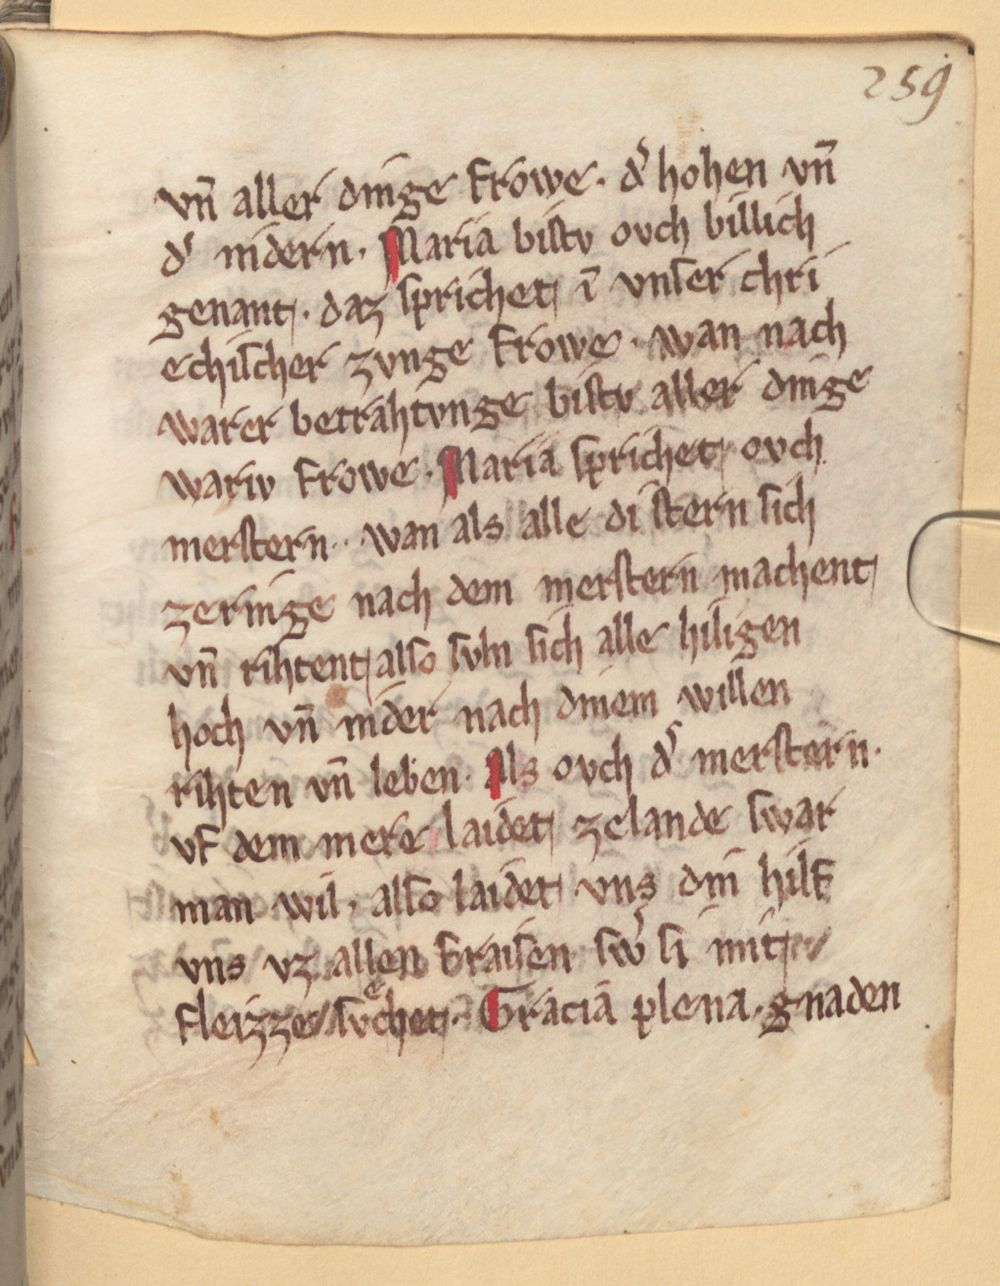 259
vn̄ aller dinge frowe · d̓ hohen vn̄
d̓ nidern · Maria bistv ovch billich
genant · daz sprichet ī vnser chri
echischer zvnge frowe · wan nach
warer betrahtvnge bistv aller dinge
wariv frowe · Maria sprichet ovch
merstern · wan als alle di stern sich
zeringe nach dem merstern machent
vn̄ rihtent also svln sich alle hiligen
hoch vn̄ nider nach dinem willen
rihten vn̄ leben · Als ovch d̓ merstern ·
vf dem mere laidet zelande swar
man wil · also laidet vns din hilf
vns vz allen fraisen sw̓ si mit
fleizze svͤchet · Gracia plena · gnaden